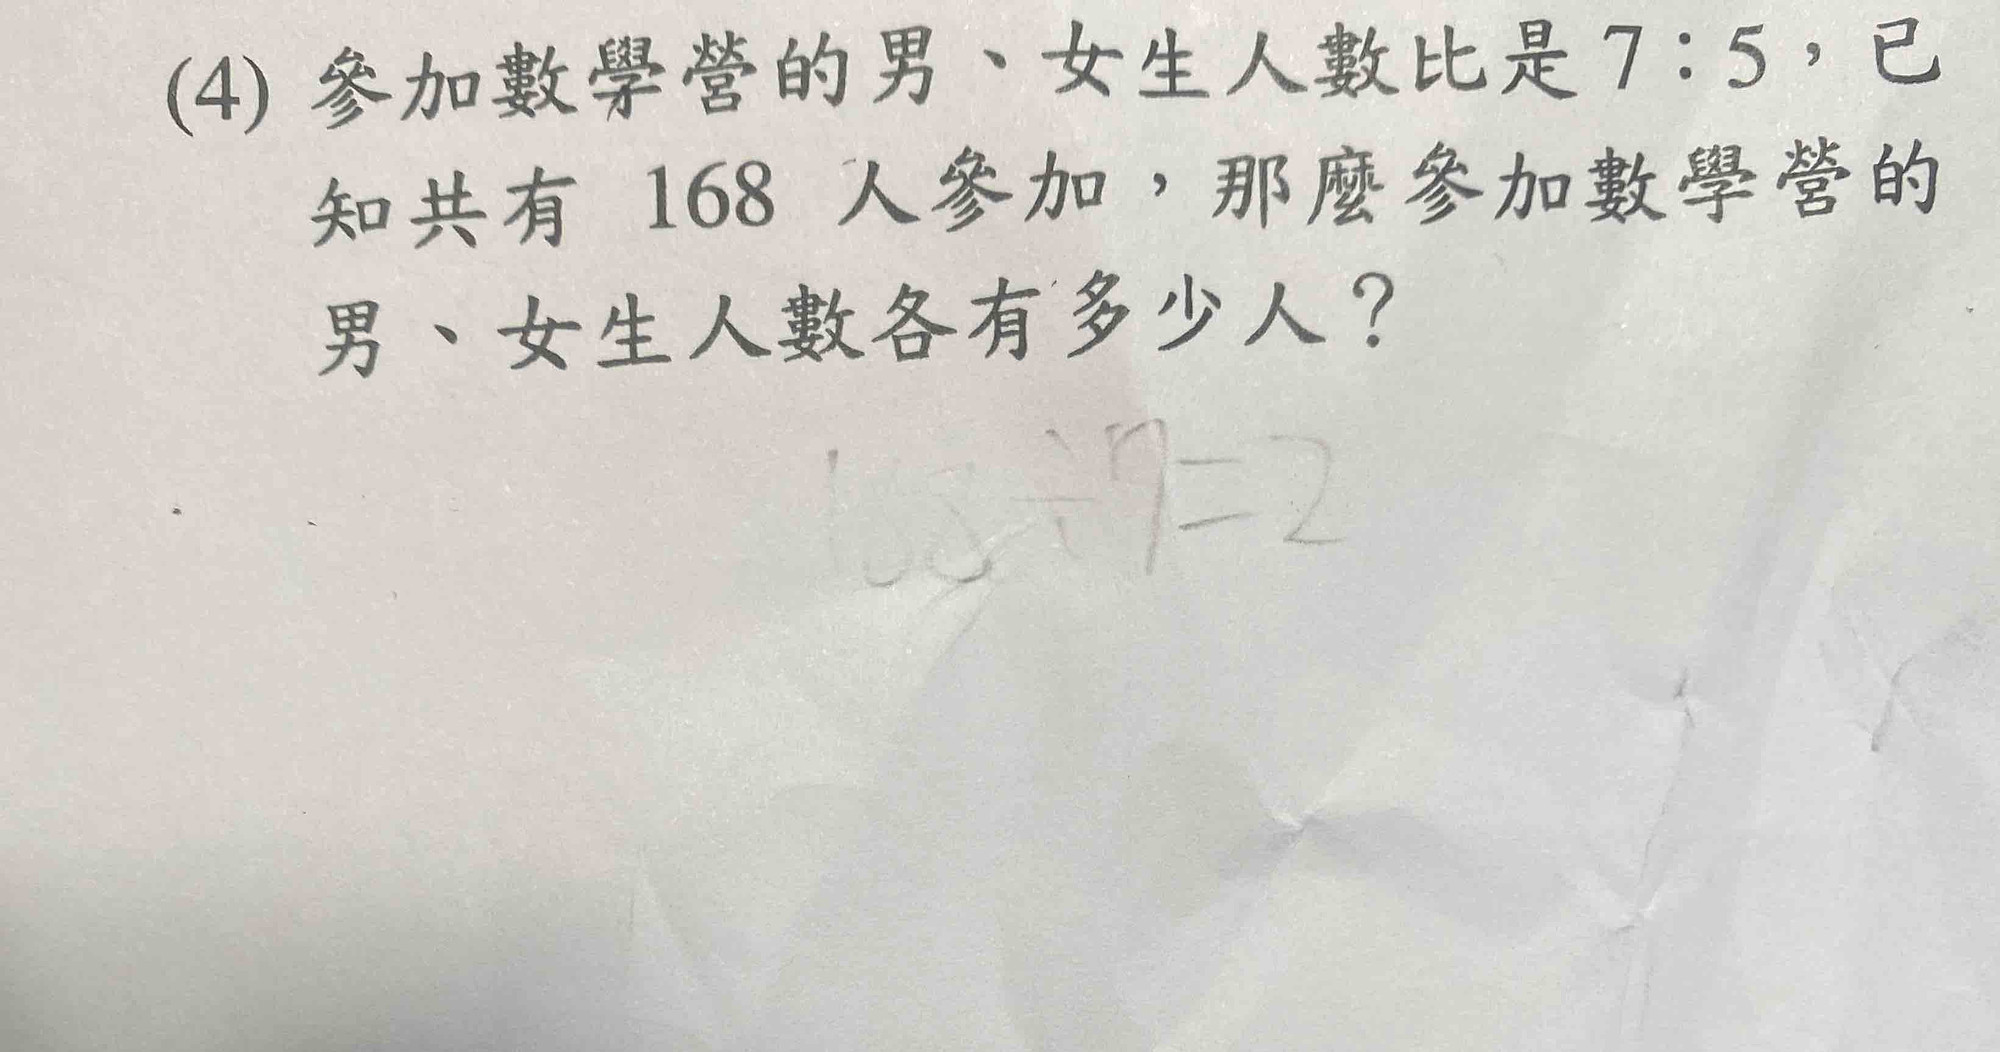 (4) 參加數學營的男、女生人數比是7：5，已
知共有 168 人參加，那麼參加數學營的
男、女生人數各有多少人？
168÷7=2